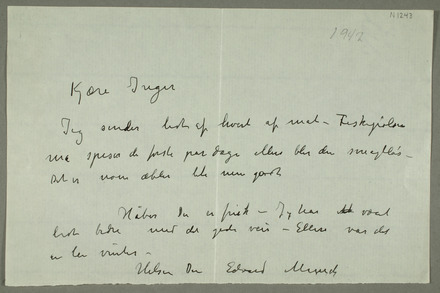 N1243
1942
Kjære Inger
Jeg sender lidt af hvert af mat – Fiskepølsen
må spises de første par dage ellers blir den smagløs –
Det er noen æbler
Håber Du er frisk – Jeg har vært
lidt bedre med det gode veir – Ellers var det
en lei vinter –
Hilsen Din Edvard Munch